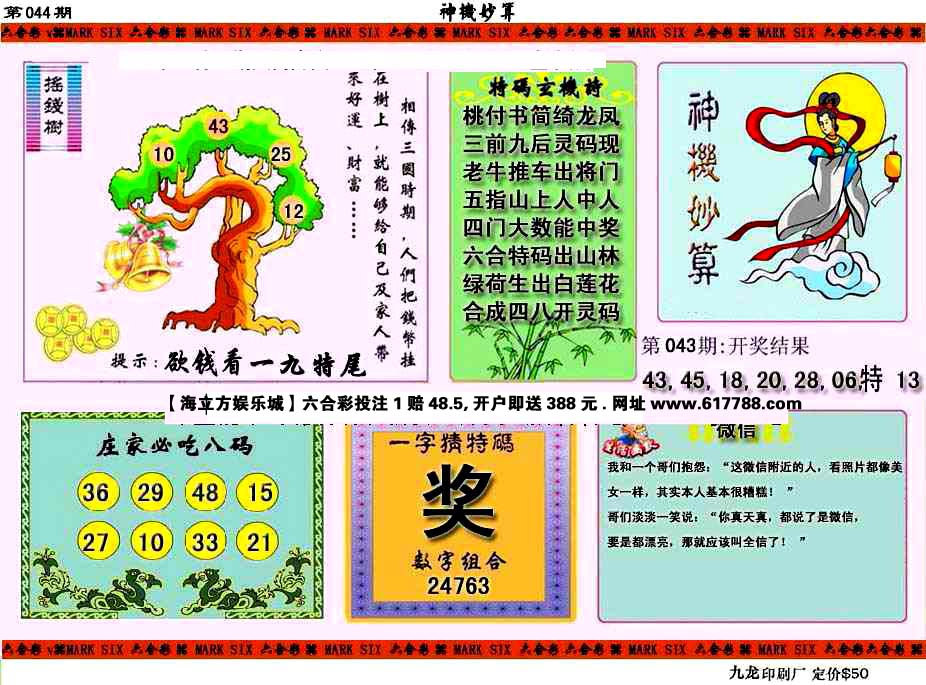 第044期
神機妙算
六合彩 MARK SIX 六合彩 MARK SIX 六合彩 MARK SIX 六合彩 MARK SIX 六合彩 MARK SIX 六合彩 MARK SIX 六合彩 MARK SIX
搖錢樹
43
10
25
12
相傳三國時期，人們把錢幣挂
在樹上，就能够给自己及家人帶
來好運、財富……
提示：欲钱看一九特尾
特碼玄機詩
桃付书简绮龙凤
三前九后灵码现
老牛推车出将门
五指山上人中人
四门大数能中奖
六合特码出山林
绿荷生出白莲花
合成四八开灵码
神機妙算
第043期:开奖结果
43,45,18,20,28,06,特 13
【海立方娱乐城】六合彩投注1赔48.5,开户即送388元.网址www.617788.com
庄家必吃八码
36 29 48 15
27 10 33 21
一字猜特碼
奖
数字组合
24763
微信
我和一个哥们抱怨：“这微信附近的人，看照片都像美
女一样，其实本人基本很糟糕！”
哥们淡淡一笑说：“你真天真，都说了是微信，
要是都漂亮，那就应该叫全信了！”
六合彩 MARK SIX 六合彩 MARK SIX 六合彩 MARK SIX 六合彩 MARK SIX 六合彩 MARK SIX 六合彩 MARK SIX 六合彩 MARK SIX
九龙印刷厂 定价$50